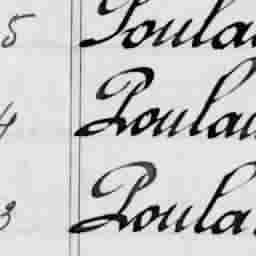 5 Poula
4 Poulai
3 Poula